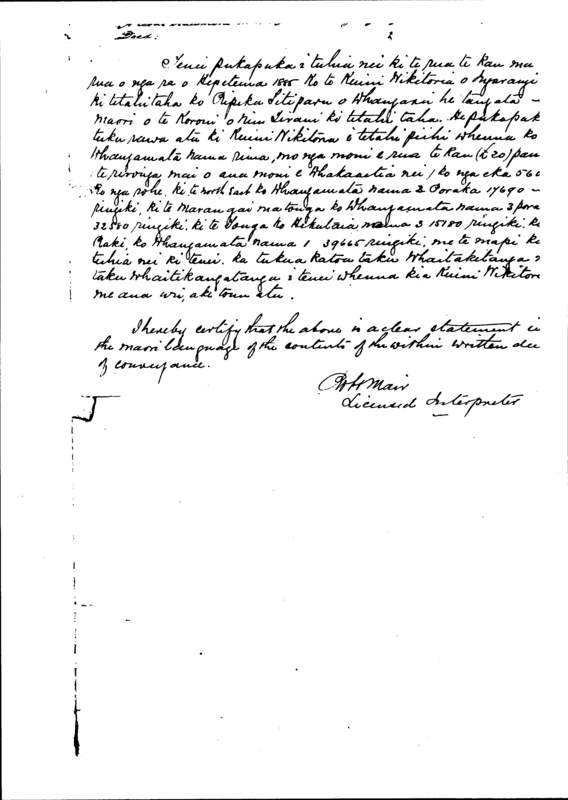 Deed:
Tenei pukapuka i tuhia nei ki te rua te kau ma
rua o nga ra o Hepetema 1885 Ko te Kuini Wikitoria o Ingarangi
ki tetahi taha ko Ripeka Titipavu o Whangarei he tangata -
maori o te Koroni o Niu Tirani ki tetahi taha. He pukapuk
tuku rawa atu ki Kuini Wikitoria i tetahi piihi whenua ko
Whangamata nama rima, mo nga moni e rua te kau (£20) pau
te rironga mai o ana moni e whakaaetia nei, ko nga eka 566
Ko nga rohe, ki te North East ko Whangamata nama 2 Poraka 17690 -
ringiki, ki te Marangai ma tonga ko Whangamata nama 3 pora
32580 ringiki, ki te Tonga ko Hikutaia nama 3 15180 ringiki, ki
Raki, ko Whangamata nama 1 39665 ringiki, me te mapi ko
tuhia nei ki tenei. ka tukua katoa taku Whaitaketanga i
taku whaitikangatanga i tenei whenua kia Kuini Wikitori
me ana uri, ake tonu atu.
I hereby certify that the above is a clear statement in
the maori language of the contents of the within written dee
of conveyance.
Mair
Licensed Interpreter